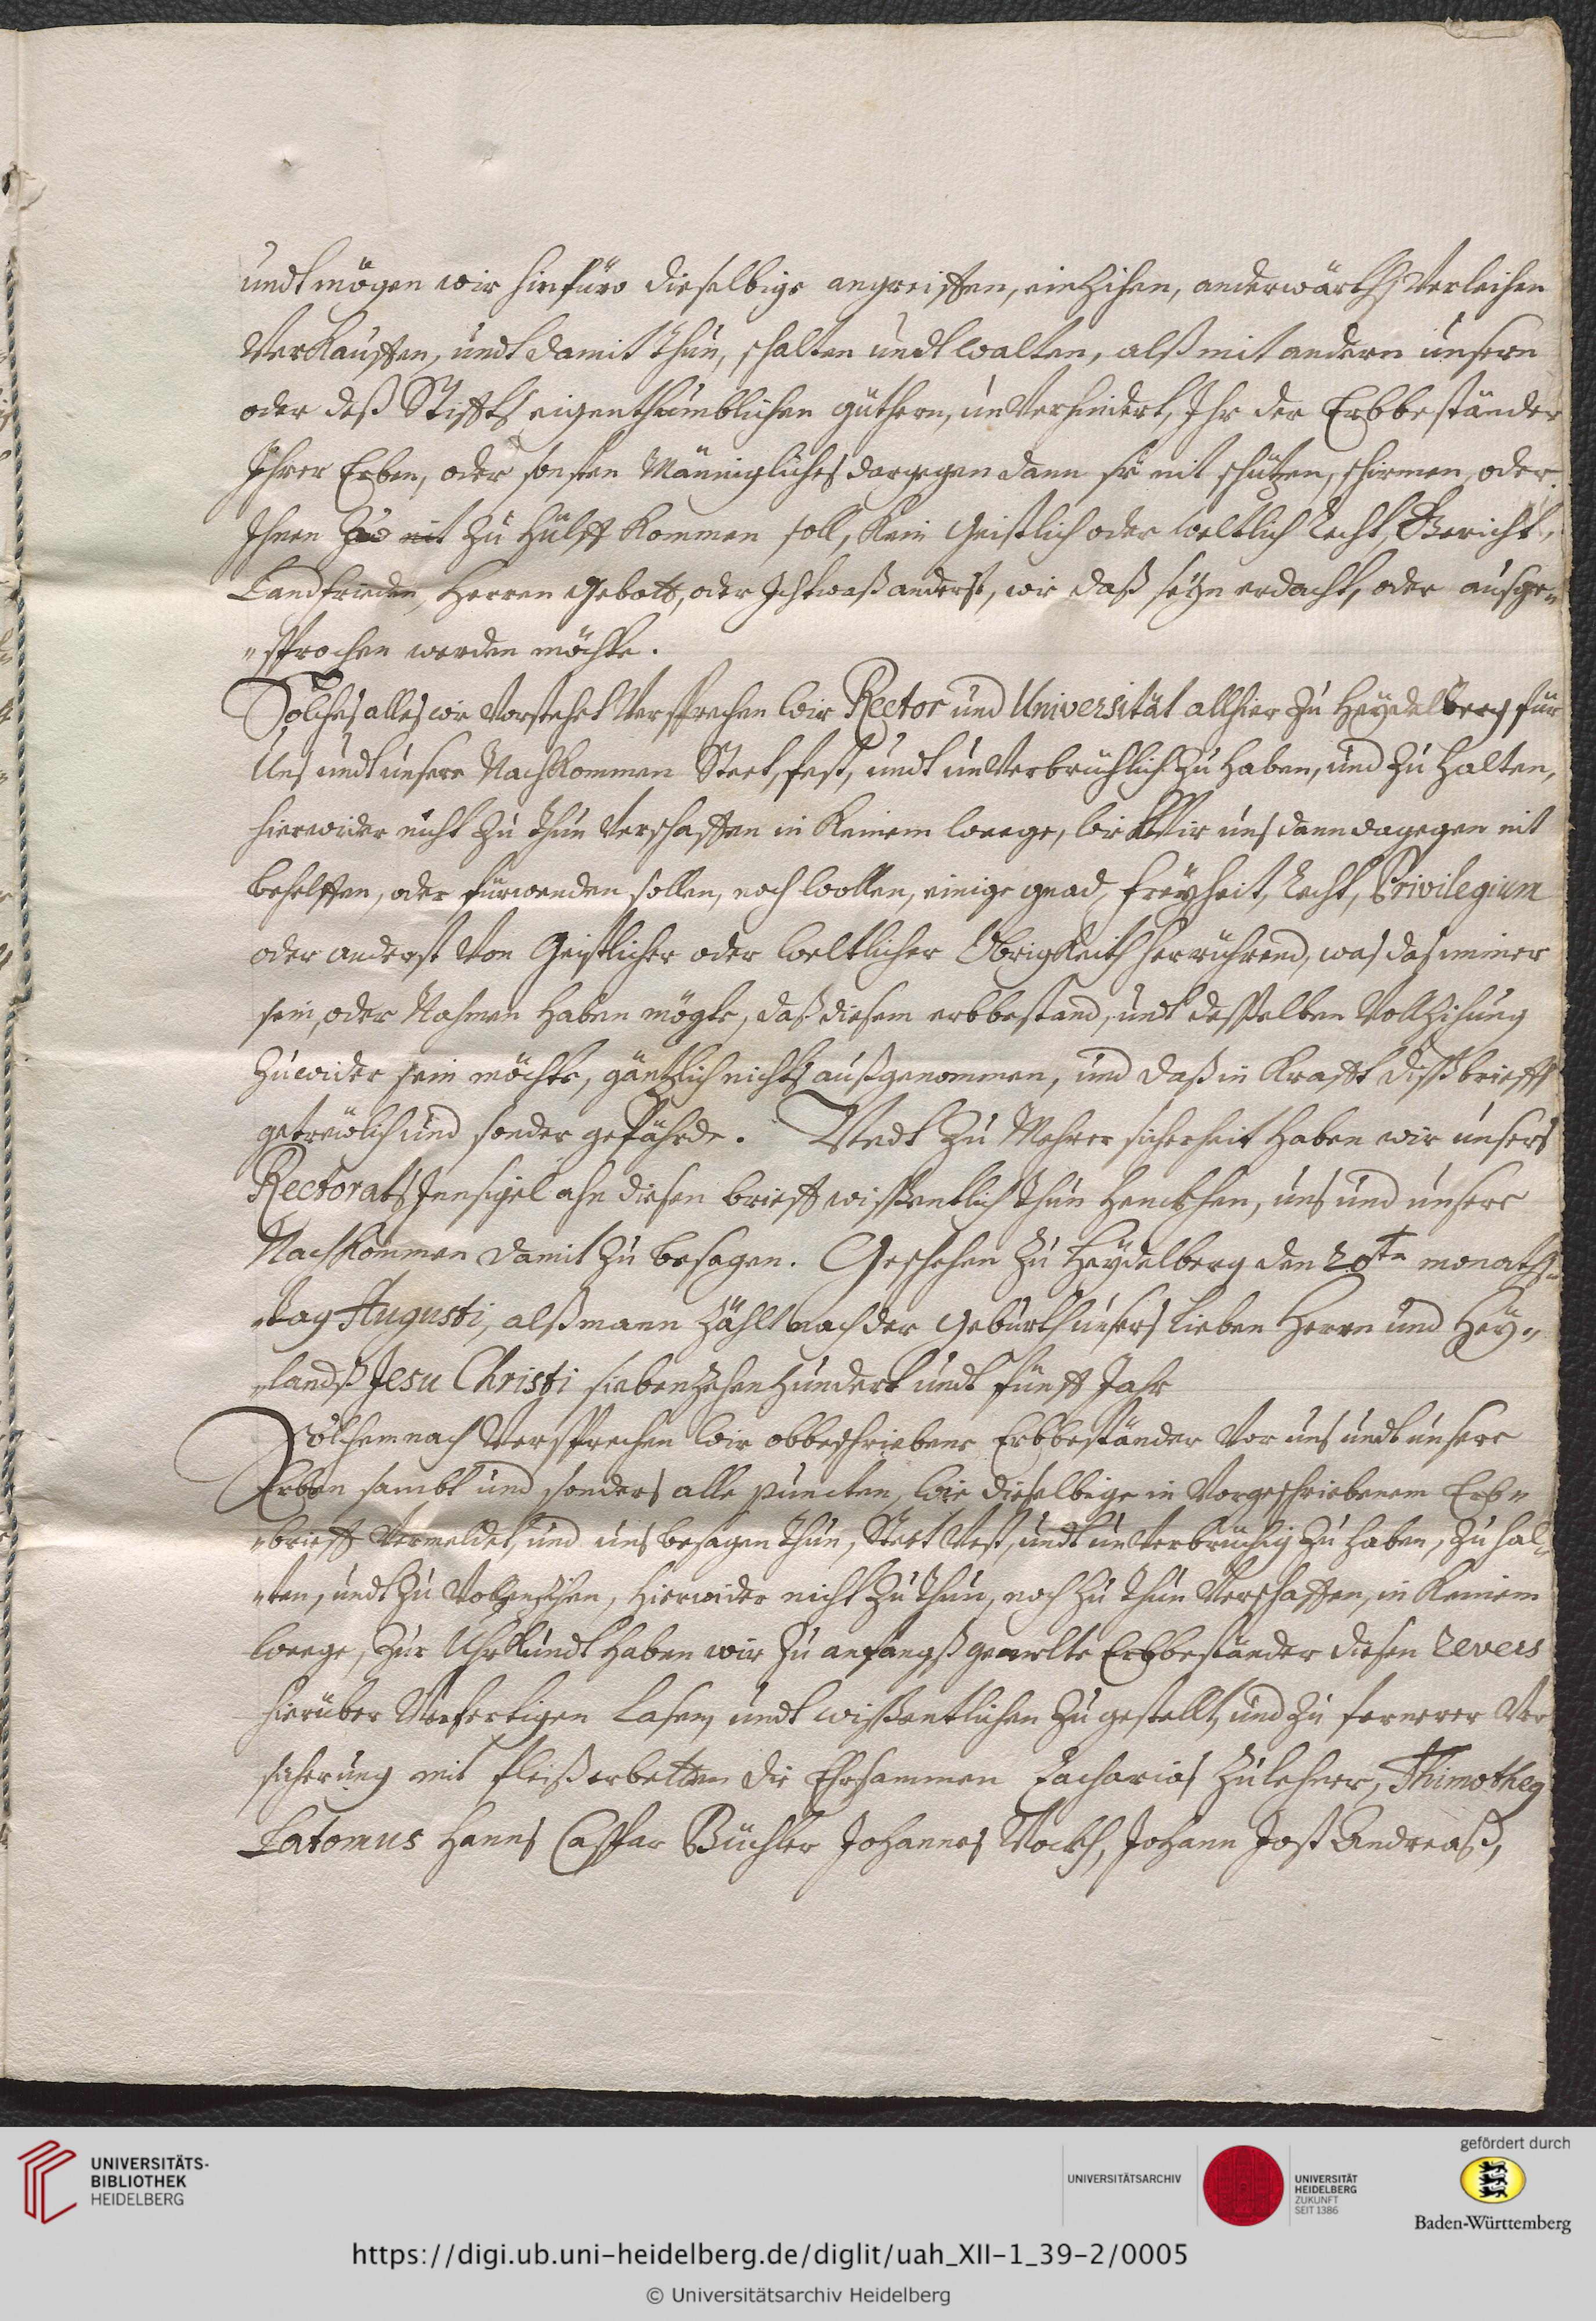 undt mögen wir hinfüro dieselbige angreiffen, einzihen, anderwärths verleihen
verkauffen, undt damit thun, schalten undt walten, alß mit andern unsern
oder deß Stiffts eigenthumblichen güthern, unverhindert, Ihr der Erbbeständer
Ihrer Erben, oder sonsten Männigliches dargegen dann sie nit schützen, schirmen, oder
Ihnen zu hülff kommen soll, kein Geistlich oder weltlich recht, Gericht,
Landfrieden, Herren gebott, oder Ichtwaß anderst, wie daß setzn erdacht, oder außge„
„sprochen werden möchte.
Solches alles wie vorstehet versprechen wir Rector und Universität allhier zu Heydelberg für
Uns undt unsere Nachkommen Steet, fest, undt unverbrüchlich zu haben, und zu halten,
hierwider nicht zu thun verschaffen in keinem weege, wie Wir uns dann dagegen nit
behelffen, oder fürwenden sollen, noch wollen, einige gnad, freyheit, recht, Privilegium
oder anderst von Geistlicher oder weltlicher Obrigkeith herrührend, was das immer
sein, oder Nahmen haben mögte, daß diesem erbbestand, undt desselben vollzihung
zuwider sein möchte, gäntzlich nichts außgenommen, und daß in krafft diß brieffs
getrewlich und sonder gefährde. Undt zu Mehrer sicherheit haben wir unsers
Rectorats Innsigel ahn diesen brieff wissentlich thun henckhen, uns und unsere
Nachkommen damit zu besagen. Geschehen zu Heydelberg den 20ten monaths„
„tag Augusti, alß mann zählt nach der geburth unsers lieben Herrn und Hey„
„landß Jesu Christi siebenzehenhundert undt fünff Jahr
Solchemnach versprechen wir obbeschriebene Erbbeständer vor uns undt unsere
Erben sambt und sonders alle puncten, wie dieselbige in vorgeschriebenem Erb„
„brieff vermeldet, und uns besagen thun, Steet vest, undt unverbrüchig zu haben, zu hal„
„ten, undt zu volnzihen, hierwider nicht zu thun, noch zu thun verschaffen, in keinem
weege, zur Uhrkundt haben wir zu anfangß gemelte Erbbeständer diesen revers
hierüber verfertigen lasen, undt wissentlichen zu gestellt, und zu fernerer ver
sicherung mit fleiß erbetten die Ehrsammen Zacharias Zulehner, Thimotheg
Latomus Hanns Caspar Büchler Johannes Mockh, Johann Jost Andreaß,
UNIVERSITÄTS-
BIBLIOTHEK
HEIDELBERG
UNIVERSITÄTSARCHIV
UNIVERSITÄT
HEIDELBERG
ZUKUNFT
SEIT 1386
gefördert durch
Baden-Württemberg
https://digi.ub.uni-heidelberg.de/diglit/uah_XII-1_39-2/0005
© Universitätsarchiv Heidelberg